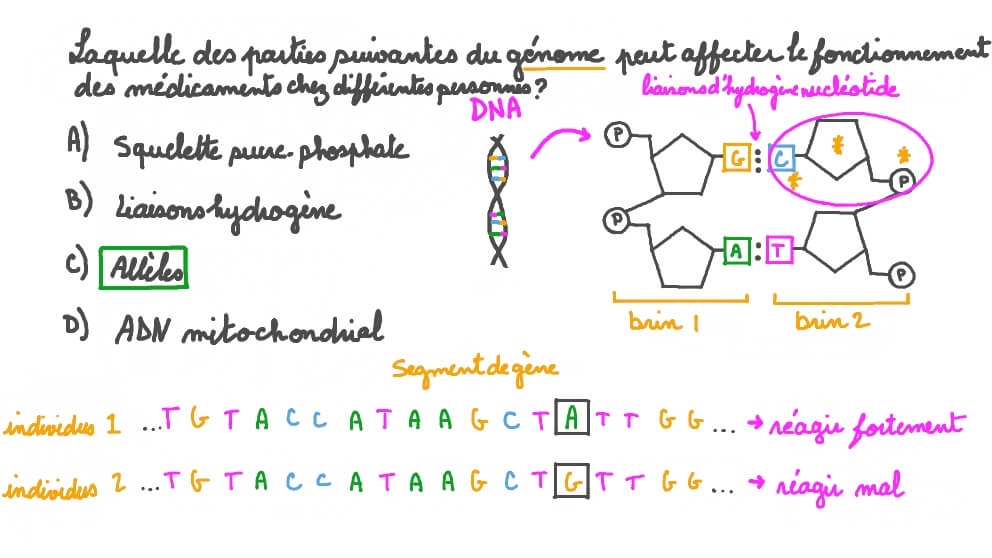 Laquelle des parties suivantes du génome peut affecter le fonctionnement
des médicaments chez différentes personnes?
liaisons d'hydrogène nucléotide
DNA
A) Squelette sucre-phosphate
B) Liaisons hydrogène
C) Allèles
D) ADN mitochondrial
P
G : C
P
P
A : T
P
brin 1
brin 2
Segment de gène
individus 1 ...T G T A C C A T A A G C T A T T G G... → réagir fortement
individus 2 ...T G T A C C A T A A G C T G T T G G... → réagir mal